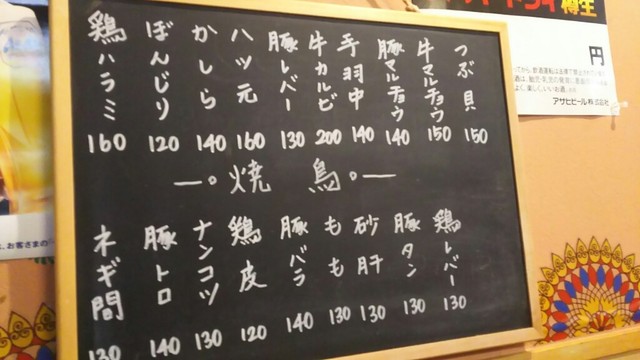 つぶ貝 150
牛マルチョウ 150
豚マルチョウ 140
手羽中 140
牛カルビ 200
豚レバー 130
ハツ元 160
かしら 140
ぼんじり 120
鶏ハラミ 160
焼 鳥
鶏レバー 130
豚タン 130
砂肝 130
もも 130
豚バラ 140
鶏皮 120
ナンコツ 130
豚トロ 140
ネギ間 130
樽生
円
アサヒビール株式会社
お客さまの